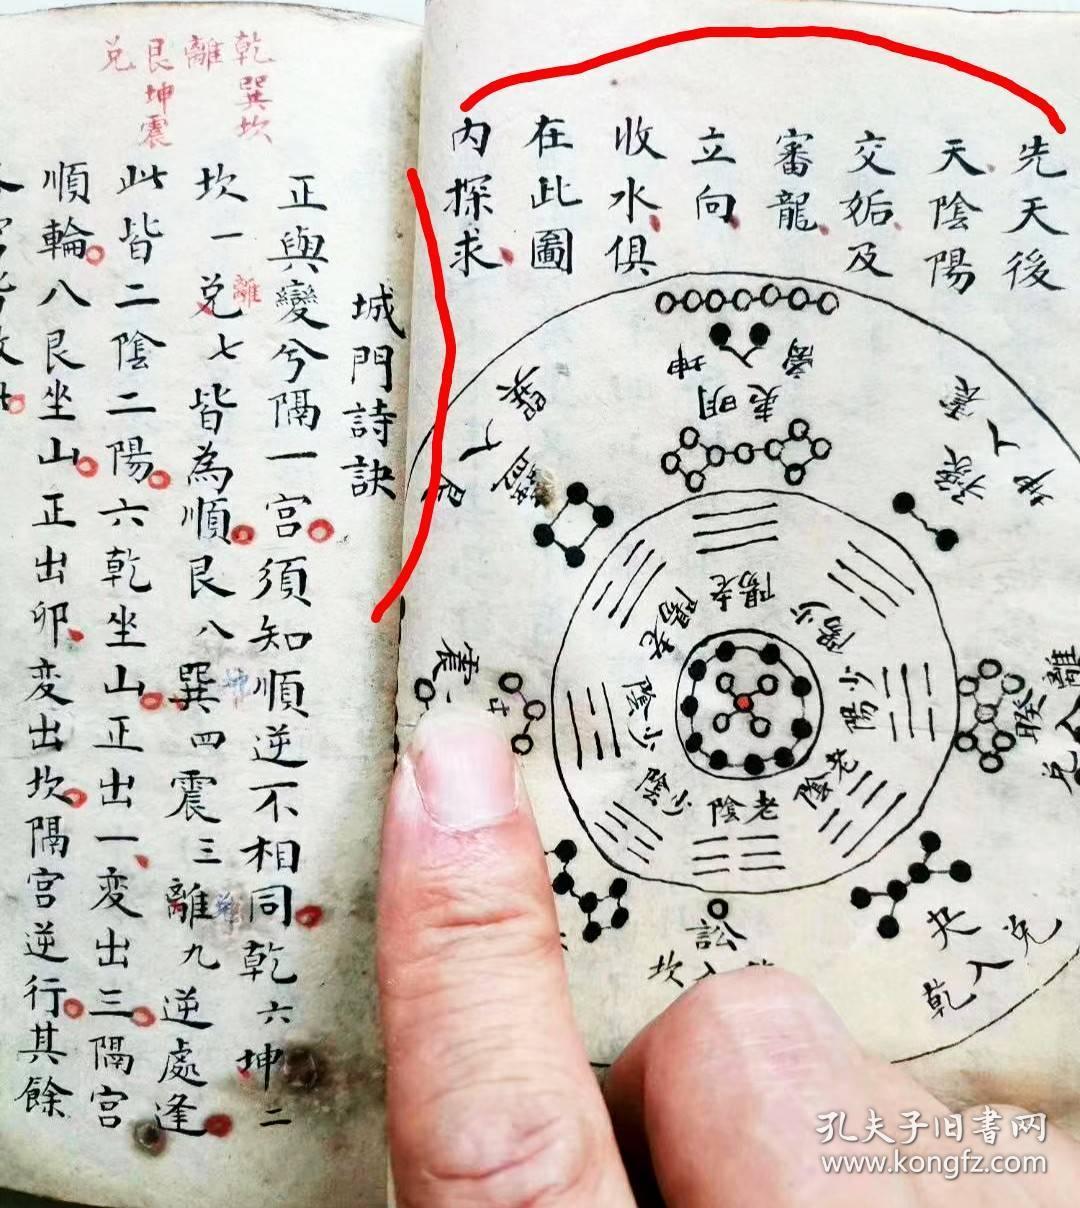 先天後
天陰陽
交姤及
審龍
立向
收水俱
在此圖
內探求
坤入
明夷
巽入
震
離
老陽
老陽
少陽
少陽
少陰
少陰
老陰
老陰
訟
坎入
夬
乾入兌
城門詩訣
正與變兮隔一宮須知順逆不相同乾六坤二
坎一兌七皆為順艮八巽四震三離九逆處逢
離
此皆二陰二陽六乾坐山正出一変出三隔宮
順輪八艮坐山正出卯変出坎隔宮逆行其餘
乾巽坎
離
艮坤震
兌
孔夫子旧書网
www.kongfz.com